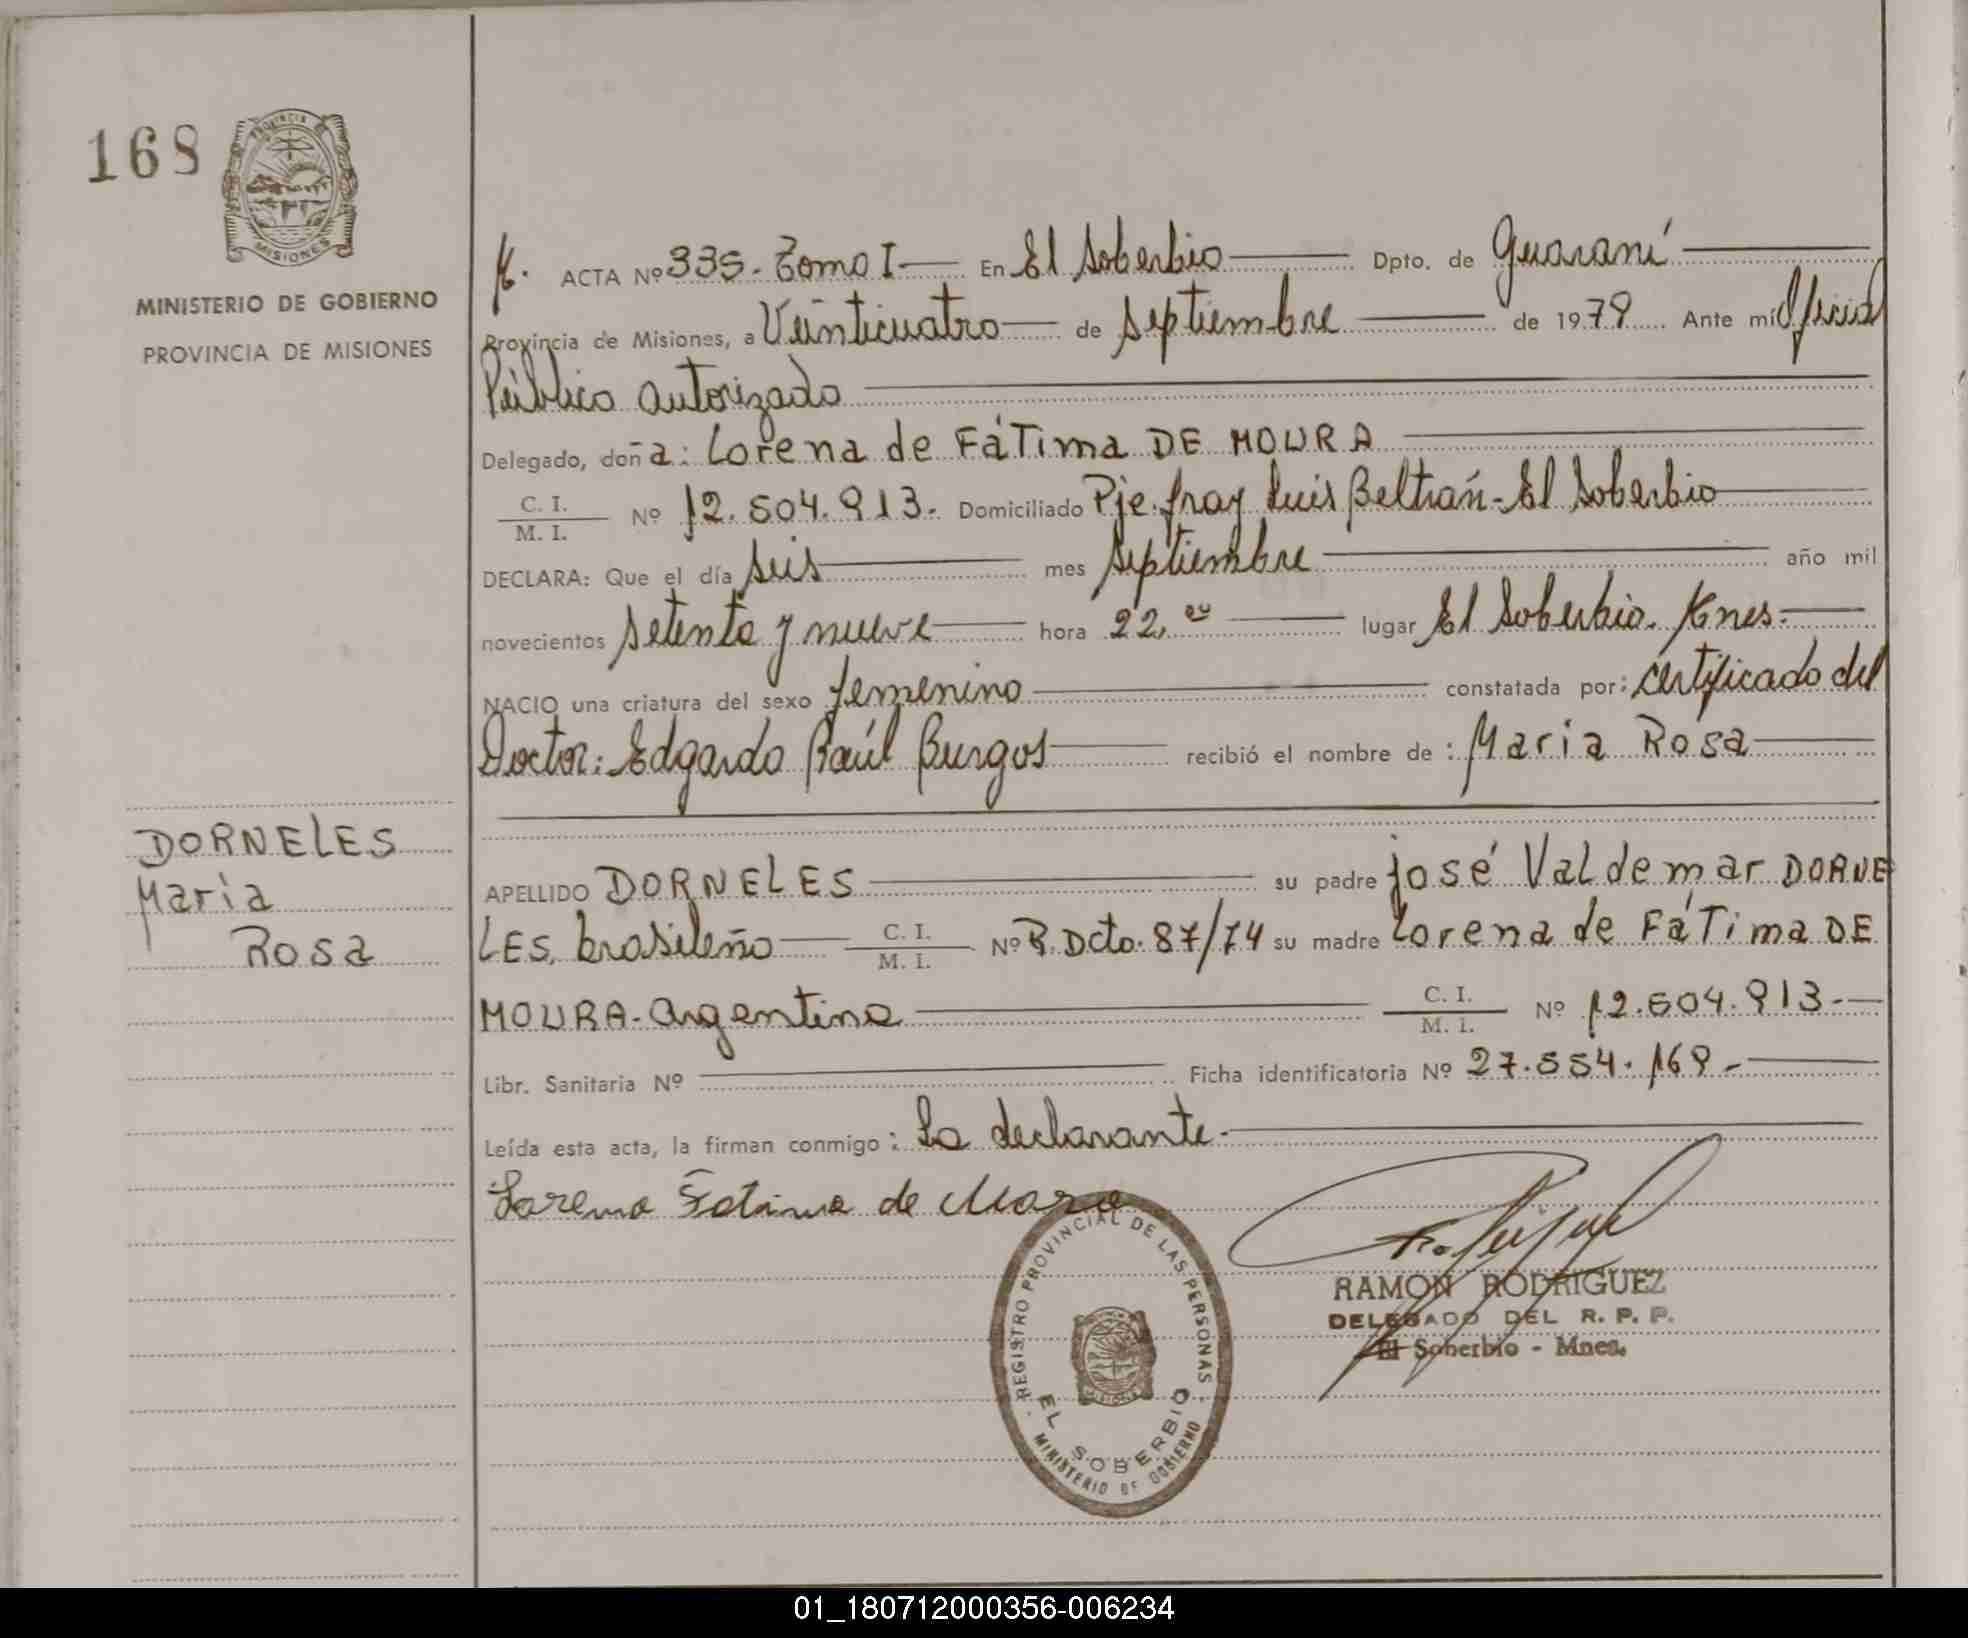 168
PROVINCIA DE
MISIONES
MINISTERIO DE GOBIERNO
PROVINCIA DE MISIONES
ACTA Nº 335. Tomo I En El Soberbio Dpto. de Guaraní
Provincia de Misiones, a Veinticuatro de septiembre de 1979 Ante mí Oficial
Público autorizado
Delegado, doña: Lorena de Fátima DE MOURA
C. I.
M. I. Nº 12.604.913. Domiciliado Pje. fray Luis Beltrán - El Soberbio
DECLARA: Que el día seis mes septiembre año mil
novecientos setenta y nueve hora 22, lugar El Soberbio. Mnes.
NACIO una criatura del sexo femenino constatada por: certificado del
Doctor: Edgardo Raúl Burgos recibió el nombre de: María Rosa
DORNELES
María
Rosa
APELLIDO DORNELES su padre José Valdemar DORNE
LES, brasileño C. I. M. I. Nº R. Dcto. 87/74 su madre Lorena de Fátima DE
MOURA - Argentina C. I. M. I. Nº 12.604.913.-
Libr. Sanitaria Nº Ficha identificatoria Nº 27.554.169.-
Leída esta acta, la firman conmigo: La declarante.-
Lorena Fatima de Mora
REGISTRO PROVINCIAL DE LAS PERSONAS
EL SOBERBIO
MINISTERIO DE GOBIERNO
RAMON RODRIGUEZ
DELEGADO DEL R. P. P.
El Soberbio - Mnes.
01_180712000356-006234